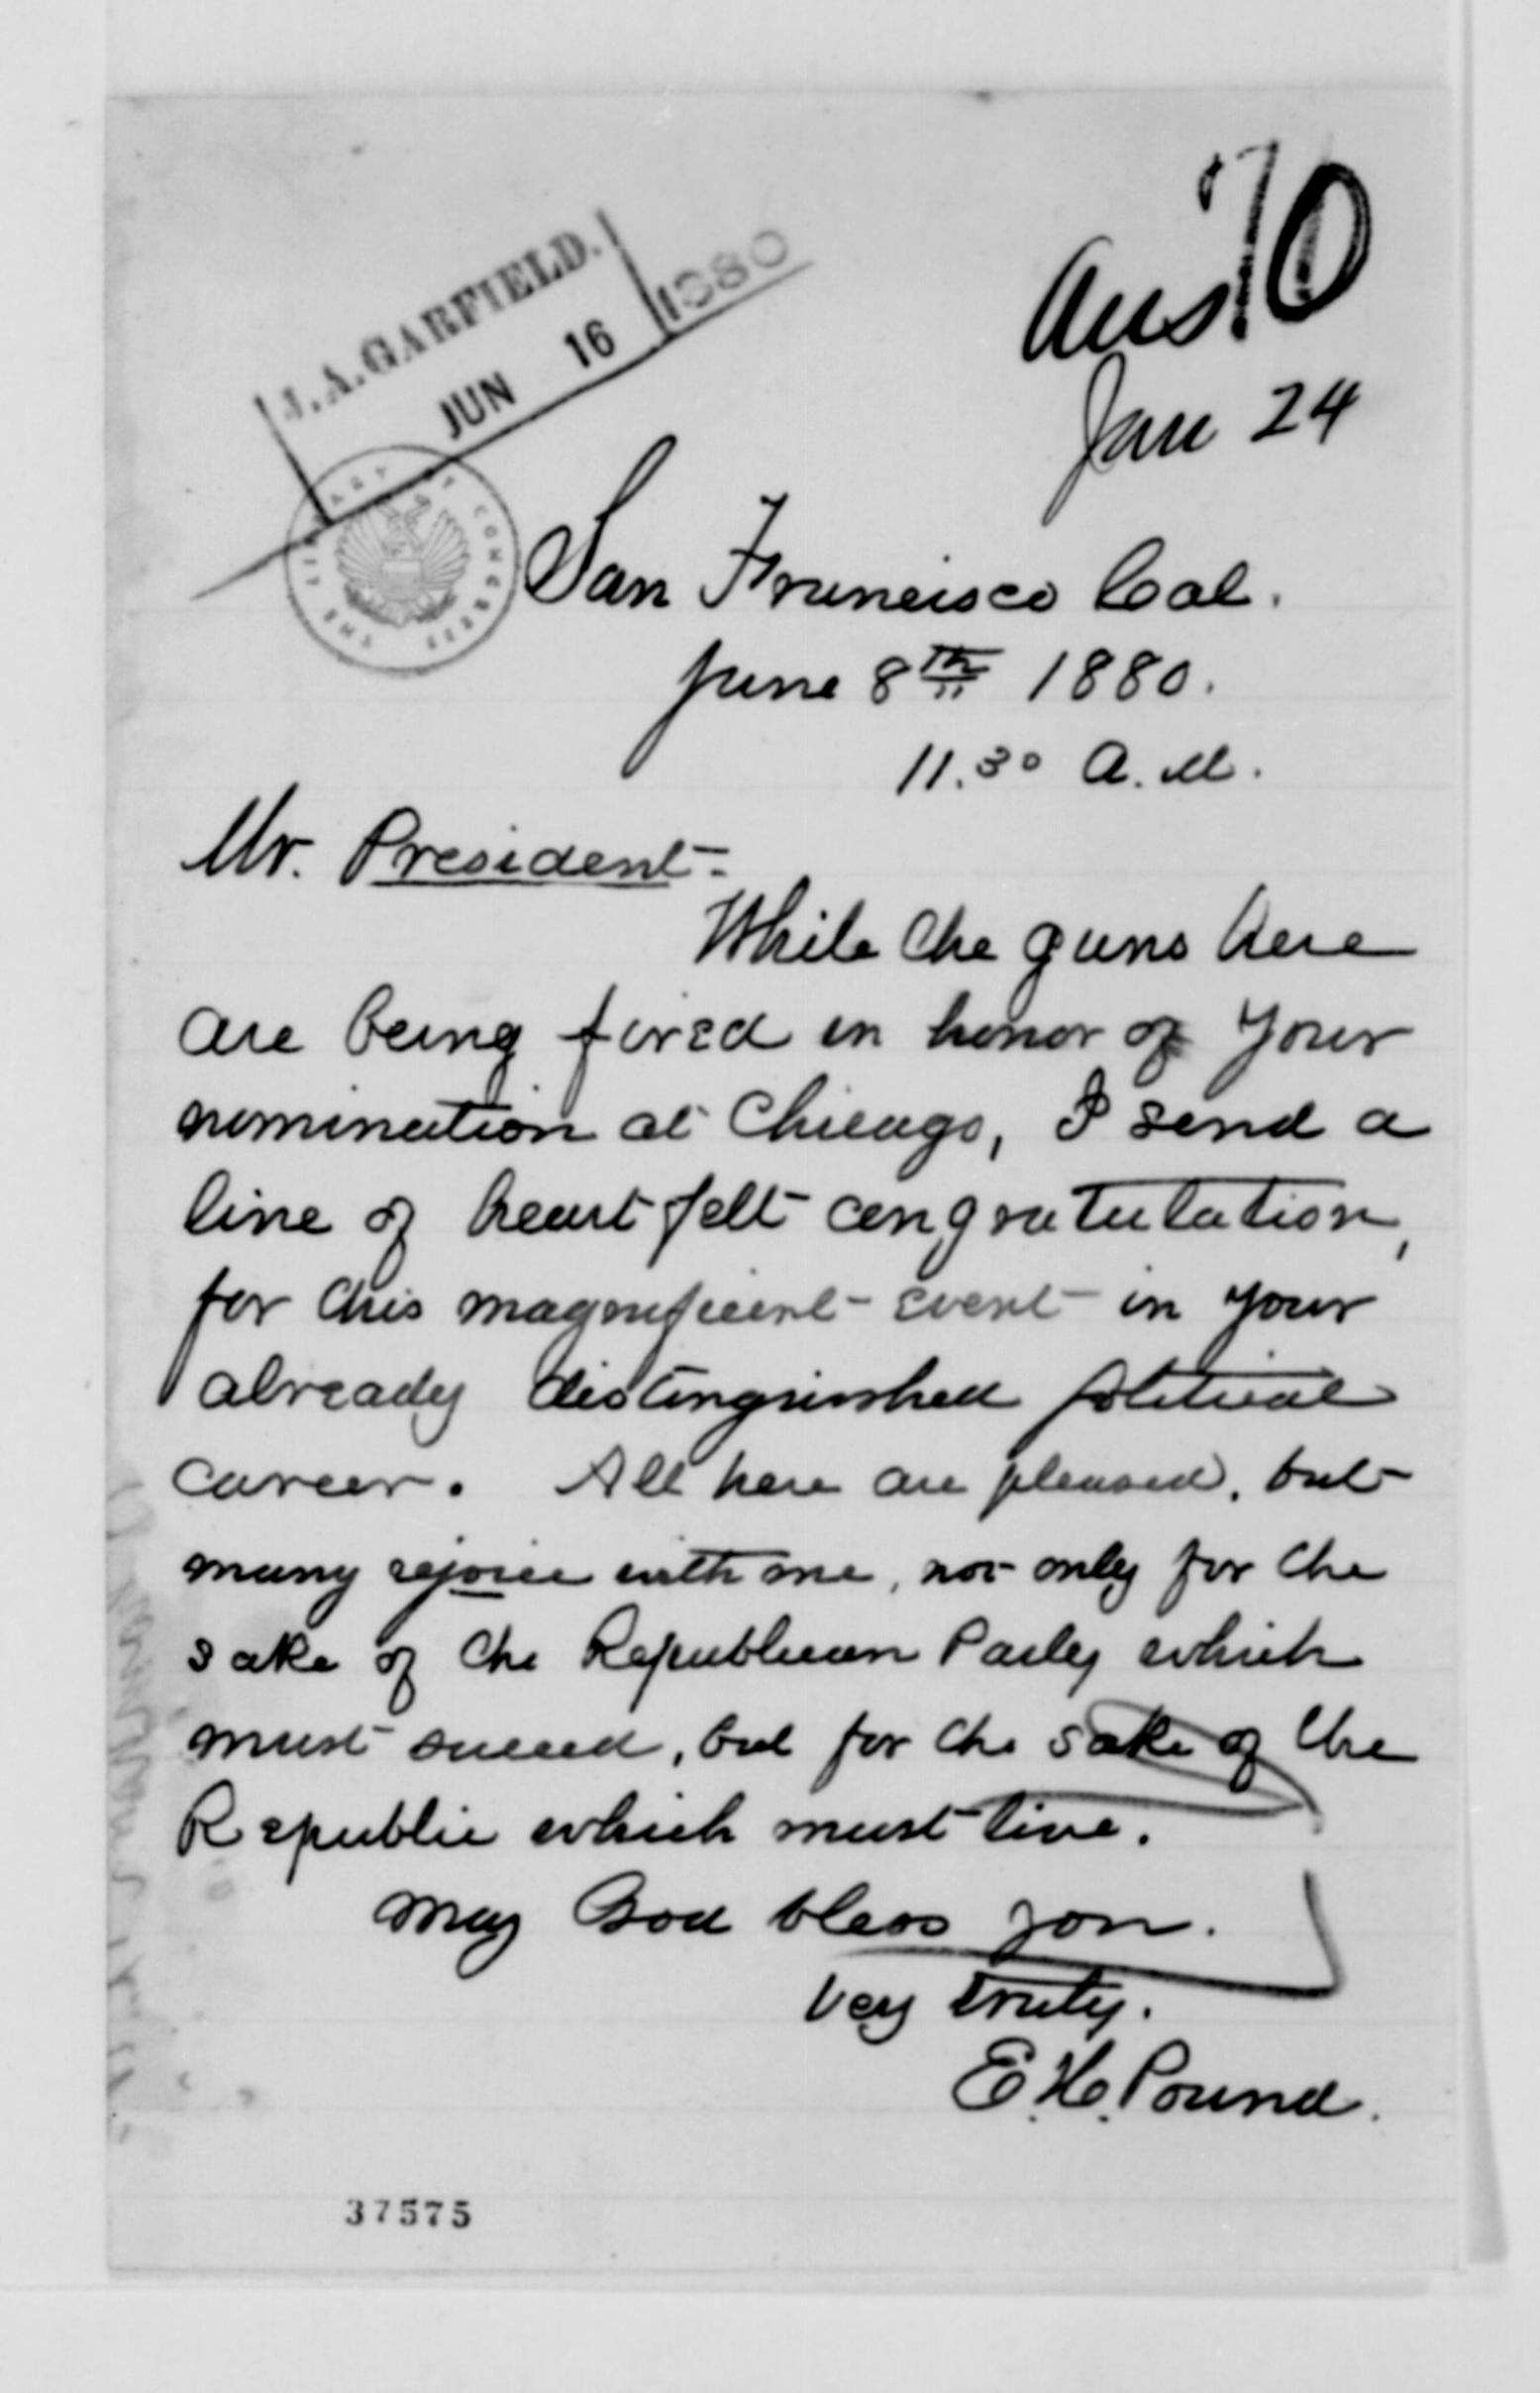 70
J. A. GARFIELD.
JUN 16 1880
Ans.
Jan 24
THE LIBRARY OF CONGRESS
San Francisco Cal.
June 8th 1880.
11.30 A.M.
Mr. President-
While the guns here
are being fired in honor of your
nomination at Chicago, I send a
line of heart felt congratulation,
for this magnificent event in your
already distinguished political
career. All here are pleased, but
many rejoice with me, not only for the
sake of the Republican Party which
must succeed, but for the sake of the
Republic which must live.
May God bless you.
Very truly.
E. H. Pound.
37575